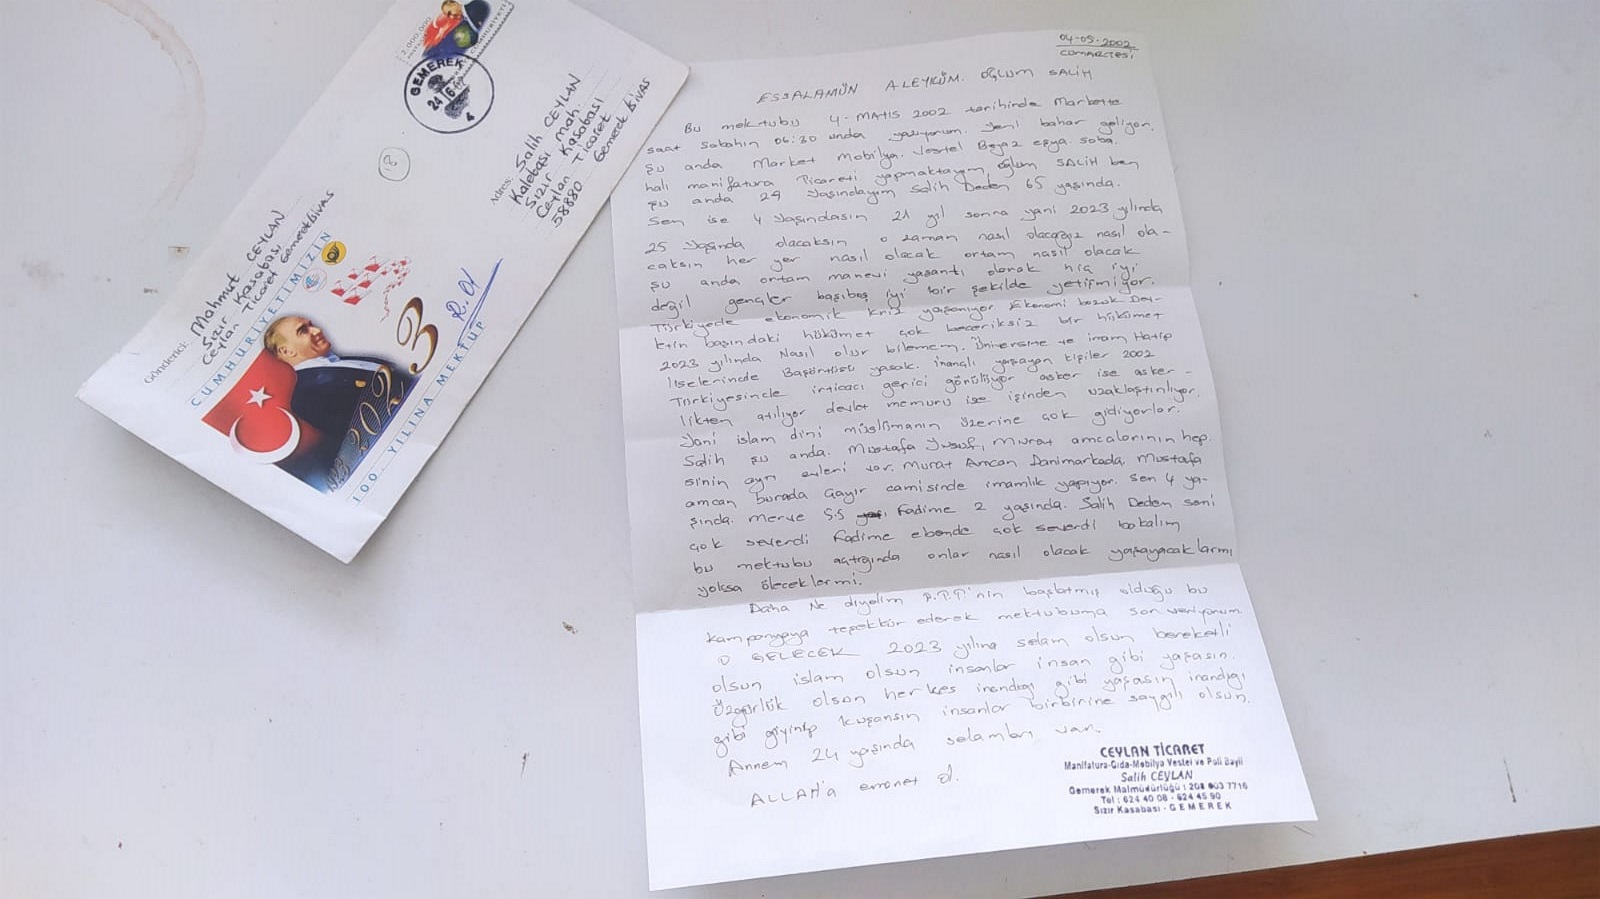 2.000.000
CUMHURİYETİ
GEMEREK
24 6
4
Adres:
Salih CEYLAN
Kalebaşı Mah.
Sızır Kasabası
Ceylan Ticaret
58880 Gemerek SİVAS
Gönderici:
Mahmut CEYLAN
Sızır Kasabası
Ceylan Ticaret Gemerek SİVAS
CUMHURİYETİMİZİN
1923 2023
100. YILINA MEKTUP
04-05-2002
CUMARTESİ
ESSALAMÜN ALEYKÜM. OĞLUM SALİH
Bu mektubu 4-MAYIS 2002 tarihinde Markette
saat sabahın 06:30 unda yazıyorum. Yeni bahar geliyor.
şu anda Market Mobilya. Vestel Beyaz eşya. soba.
halı manifatura Ticareti yapmaktayım, oğlum SALİH ben
şu anda 29 Yaşındayım Salih Deden 65 yaşında.
Sen ise 4 Yaşındasın 21 yıl sonra yani 2023 yılında
25 Yaşında olacaksın o zaman nasıl olacağız nasıl ola-
caksın her yer nasıl olacak ortam nasıl olacak
şu anda ortam manevi yaşantı olarak hiç iyi
değil gençler başıboş iyi bir şekilde yetişmiyor.
Türkiyede ekonomik kriz yaşanıyor. Ekonomi bozuk Dev-
letin başındaki hükümet çok beceriksiz bir hükümet
2023 yılında Nasıl olur bilemem. Üniversite ve imam Hatip
liselerinde Başörtüsü yasak. inançlı yaşayan kişiler 2002
Türkiyesinde irticacı gerici görülüyor asker ise asker-
likten atılıyor devlet memuru ise işinden uzaklaştırılıyor.
Yani islam dini müslümanın üzerine çok gidiyorlar.
Salih şu anda. Mustafa Yusuf, Murat amcalarının hep.
sinin ayrı evleri var. Murat Amcan Danimarkada. Mustafa
amcan burada Gayır camisinde imamlık yapıyor. Sen 4 ya-
şında. Merve 5.5 Fadime 2 yaşında. Salih Deden seni
çok severdi Fadime ebende çok severdi bakalım
bu mektubu açtığında onlar nasıl olacak yaşayacaklarmı
yoksa öleceklermi.
Daha Ne diyelim P.T.T'nin başlatmış olduğu bu
kampanyaya teşekkür ederek mektubuma son veriyorum
O GELECEK 2023 yılına selam olsun bereketli
olsun islam olsun insanlar insan gibi yaşasın.
Özgürlük olsun herkes inandığı gibi yaşasın inandığı
gibi giyinip kuşansın insanlar birbirine saygılı olsun.
Annem 24 yaşında selamları var.
ALLAH'a emanet ol.
CEYLAN TİCARET
Manifatura-Gıda-Mobilya Vestel ve Poli Bayii
Salih CEYLAN
Gemerek Malmüdürlüğü : 208 003 7716
Tel : 624 40 08 - 624 45 90
Sızır Kasabası - GEMEREK